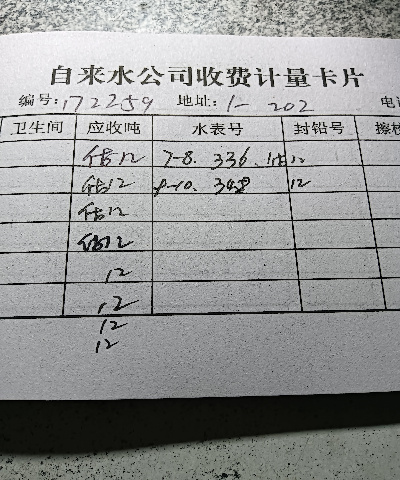 自来水公司收费计量卡片
编号: 172259 地址: 1-202 电
卫生间 应收吨 水表号 封铅号 擦
估12 7-8. 336. 估12
估12 9-10. 348 12
估12
估12
12
12
12
12